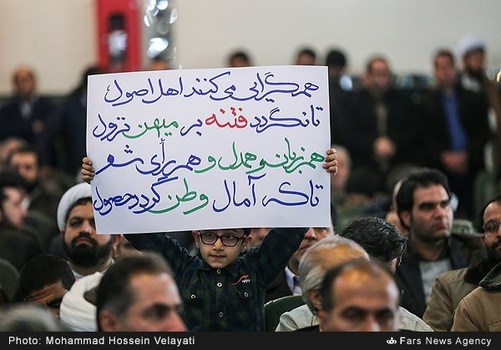 همگرایی می‌کنند اهل اصول
تا نگردد فتنه بر میهن نزول
همزبان و همدل و هم رأی شو
تا که آمال وطن گردد حصول
Photo: Mohammad Hossein Velayati
Fars News Agency